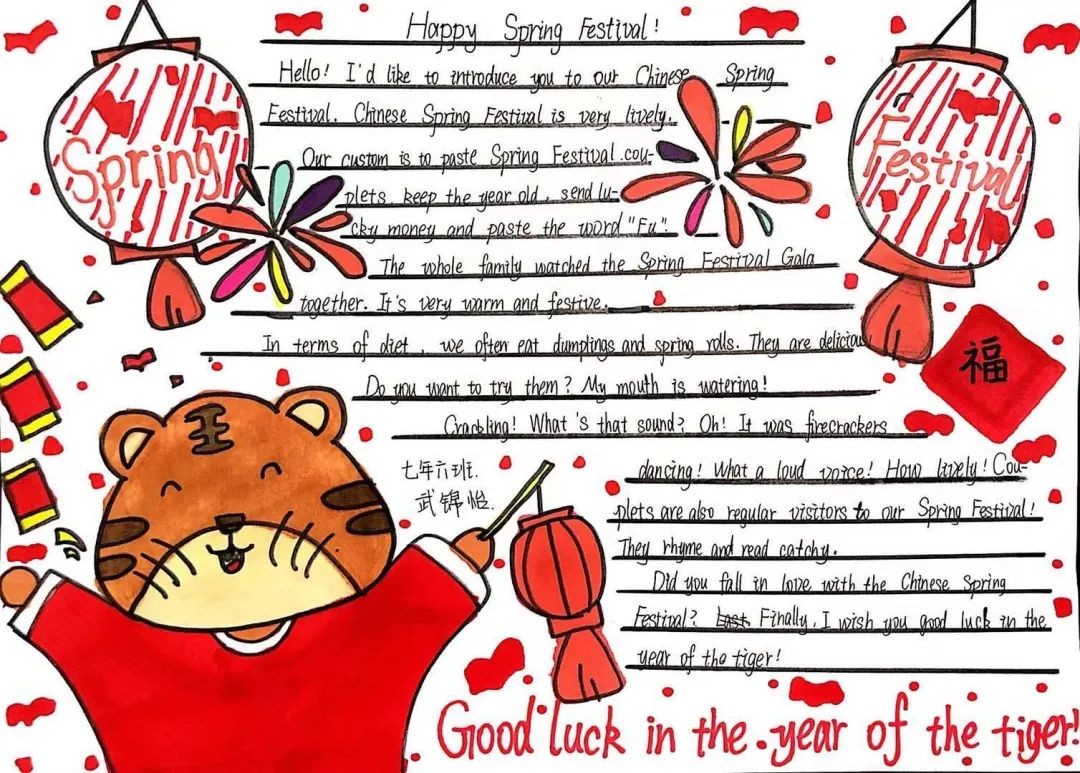 Spring
Festival
Happy Spring Festival!
Hello! I'd like to introduce you to our Chinese Spring
Festival. Chinese Spring Festival is very lively.
Our custom is to paste Spring Festival cou-
plets, keep the year old, send lu-
cky money and paste the word "Fu".
The whole family watched the Spring Festival Gala
together. It's very warm and festive.
In terms of diet, we often eat dumplings and spring rolls. They are delicious
Do you want to try them? My mouth is watering!
Crackling! What's that sound? Oh! It was firecrackers
dancing! What a loud voice! How lively! Cou-
plets are also regular visitors to our Spring Festival!
They rhyme and read catchy.
Did you fall in love with the Chinese Spring
Festival? Last Finally, I wish you good luck in the
year of the tiger!
福
王
七年六班.
武锦怡.
Good luck in the year of the tiger!